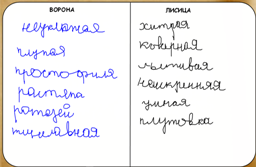 ВОРОНА
неуклюжая
глупая
просто-филя
растяпа
ротозей
тщеславная
ЛИСИЦА
хитрая
коварная
льстивая
неискренняя
умная
плутовка